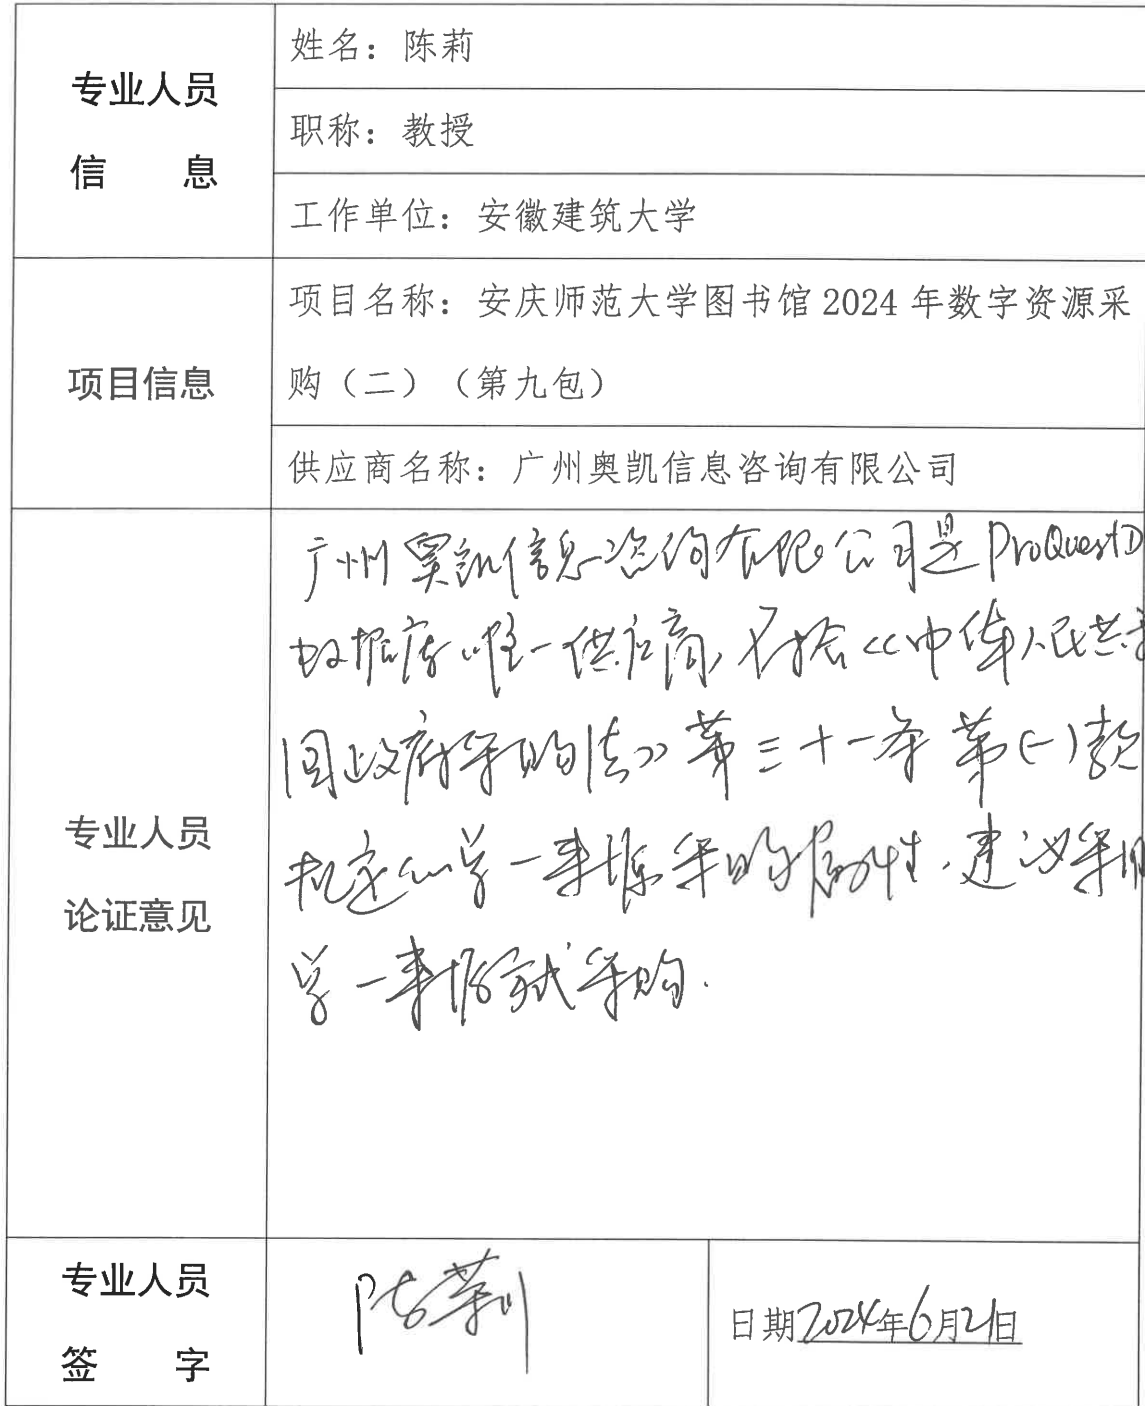 专业人员
信 息
姓名：陈莉
职称：教授
工作单位：安徽建筑大学
项目信息
项目名称：安庆师范大学图书馆 2024 年数字资源采
购（二）（第九包）
供应商名称：广州奥凯信息咨询有限公司
专业人员
论证意见
广州奥凯信息咨询有限公司是ProQuestD
数据库唯一供应商，符合《中华人民共和
国政府采购法》第三十一条第(一)款
规定的单一来源采购属性，建议采用
单一来源方式采购.
专业人员
签 字
陈莉
日期2024年6月21日